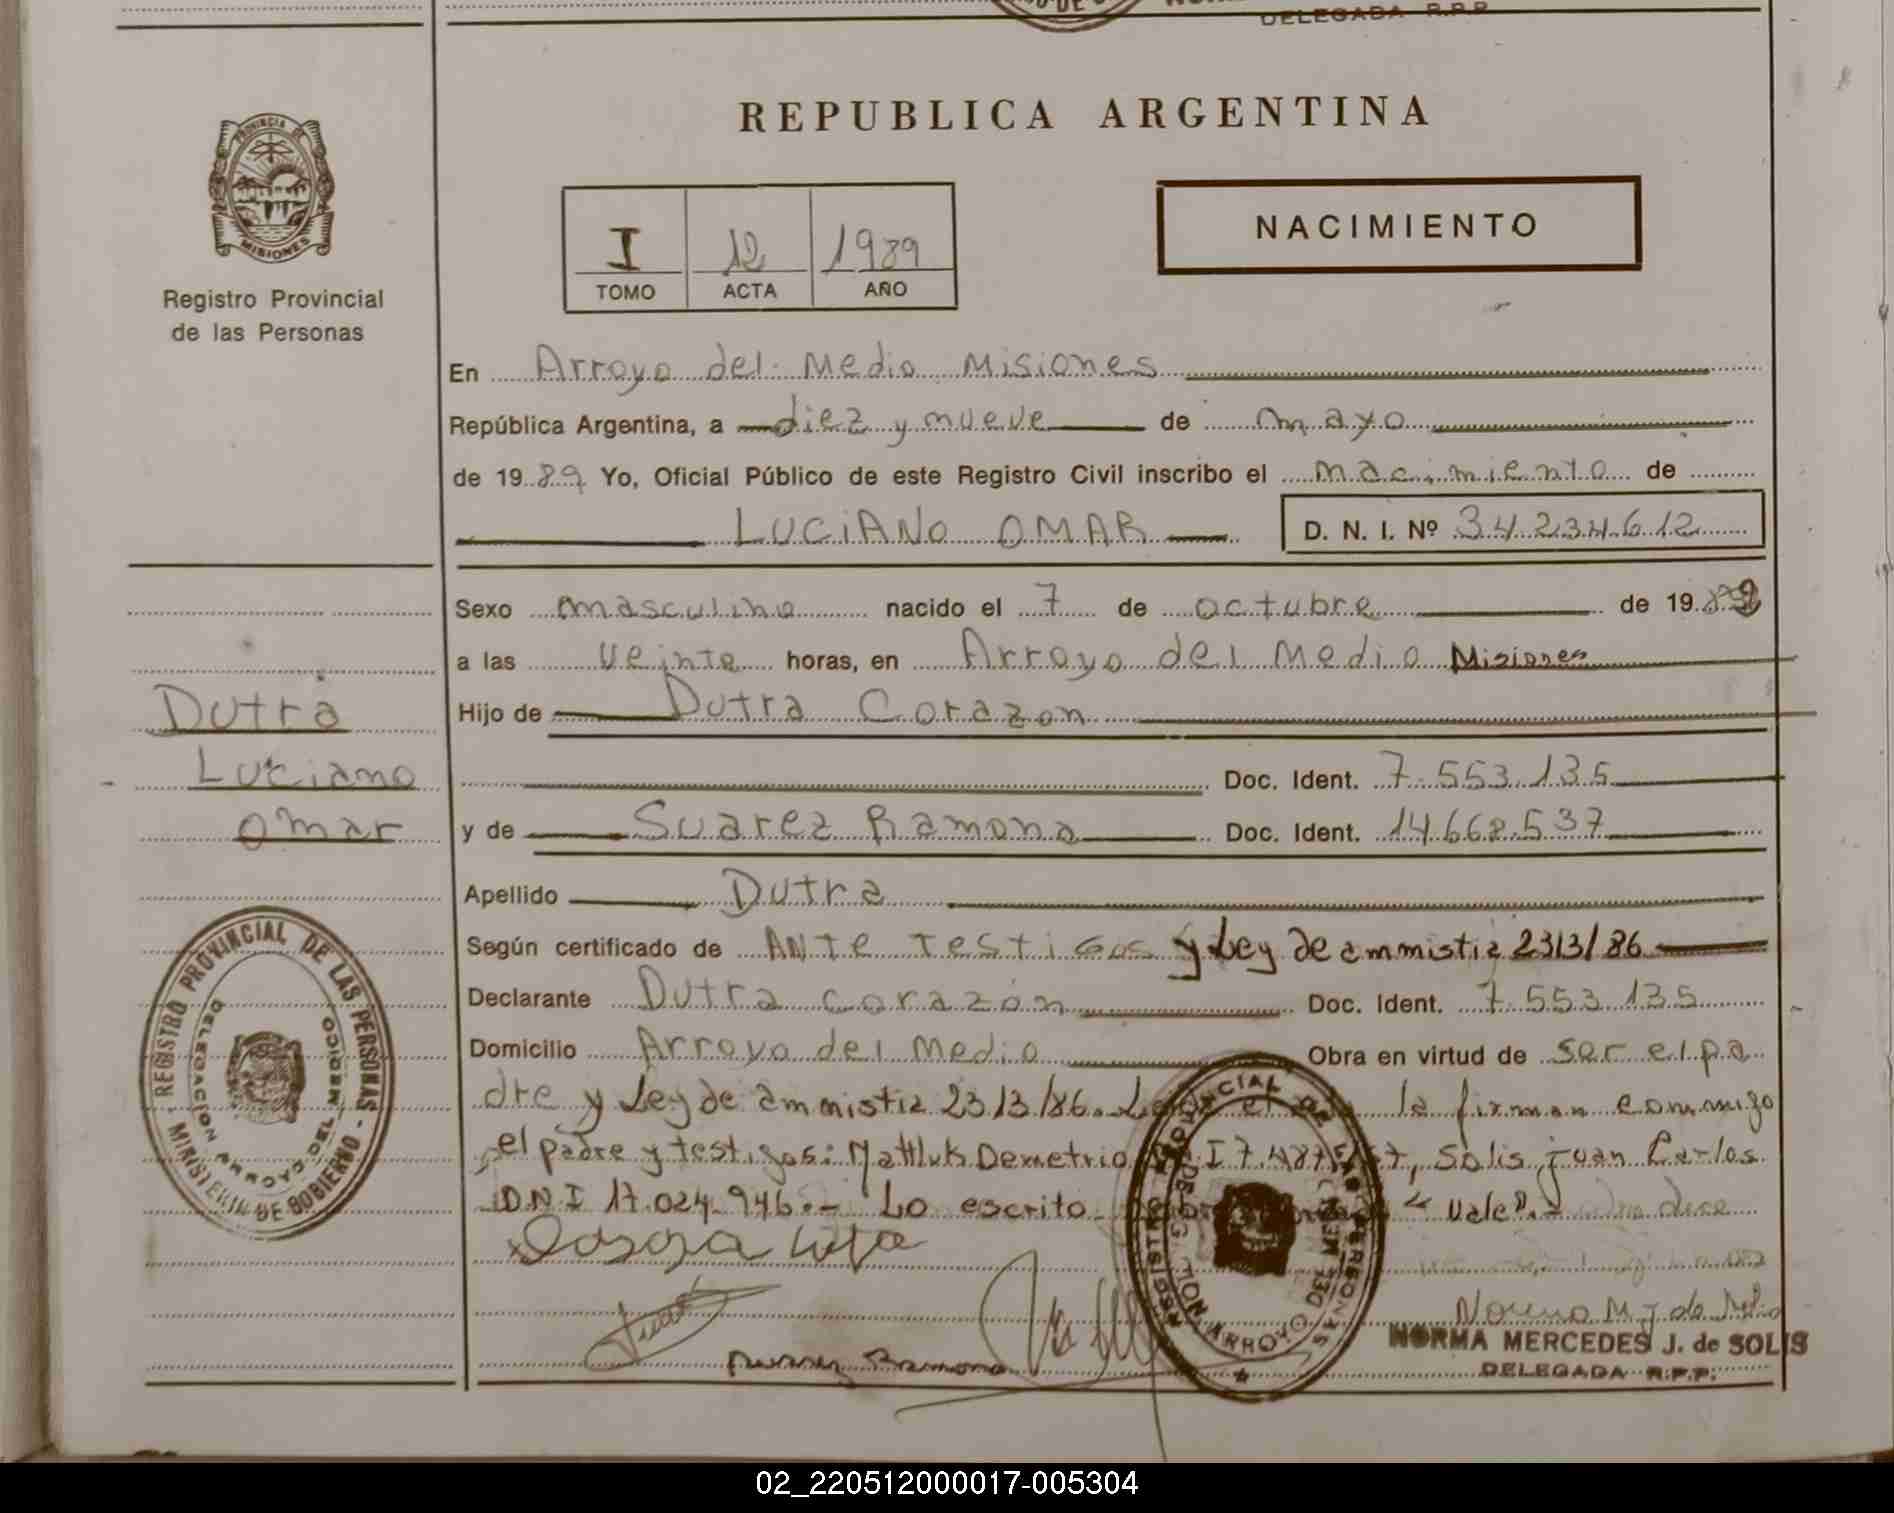 DELEGADA R.P.P.
REPUBLICA ARGENTINA
PROVINCIA DE
MISIONES
Registro Provincial
de las Personas
I 12 1989
TOMO ACTA AÑO
NACIMIENTO
En Arroyo del Medio Misiones
República Argentina, a diez y nueve de mayo
de 1989 Yo, Oficial Público de este Registro Civil inscribo el nacimiento de
LUCIANO OMAR D. N. I. Nº 34.234.612
Sexo masculino nacido el 7 de octubre de 198
a las veinte horas, en Arroyo del Medio Misiones
Hijo de Dutra Corazon
Doc. Ident. 7.553.135
y de Suarez Ramona Doc. Ident. 14.668.537
Apellido Dutra
Según certificado de ANTE TESTIGOS y Ley de ammistia 2313/86
Declarante Dutra corazón Doc. Ident. 7.553.135
Domicilio Arroyo del Medio Obra en virtud de ser el pa
dre y Ley de ammistia 2313/86. la firman conmigo
el padre y testigos: Demetrio I 7.487 7, Solis juan Carlos
D.N.I 17.024.946.- Lo escrito "Vale".-
Dutra
Luciano
Omar
REGISTRO PROVINCIAL DE LAS PERSONAS - MINISTERIO DE GOBIERNO -
Suarez Ramona
ARROYO DEL MEDIO
NORMA MERCEDES J. de SOLIS
DELEGADA R.P.P.
02_220512000017-005304